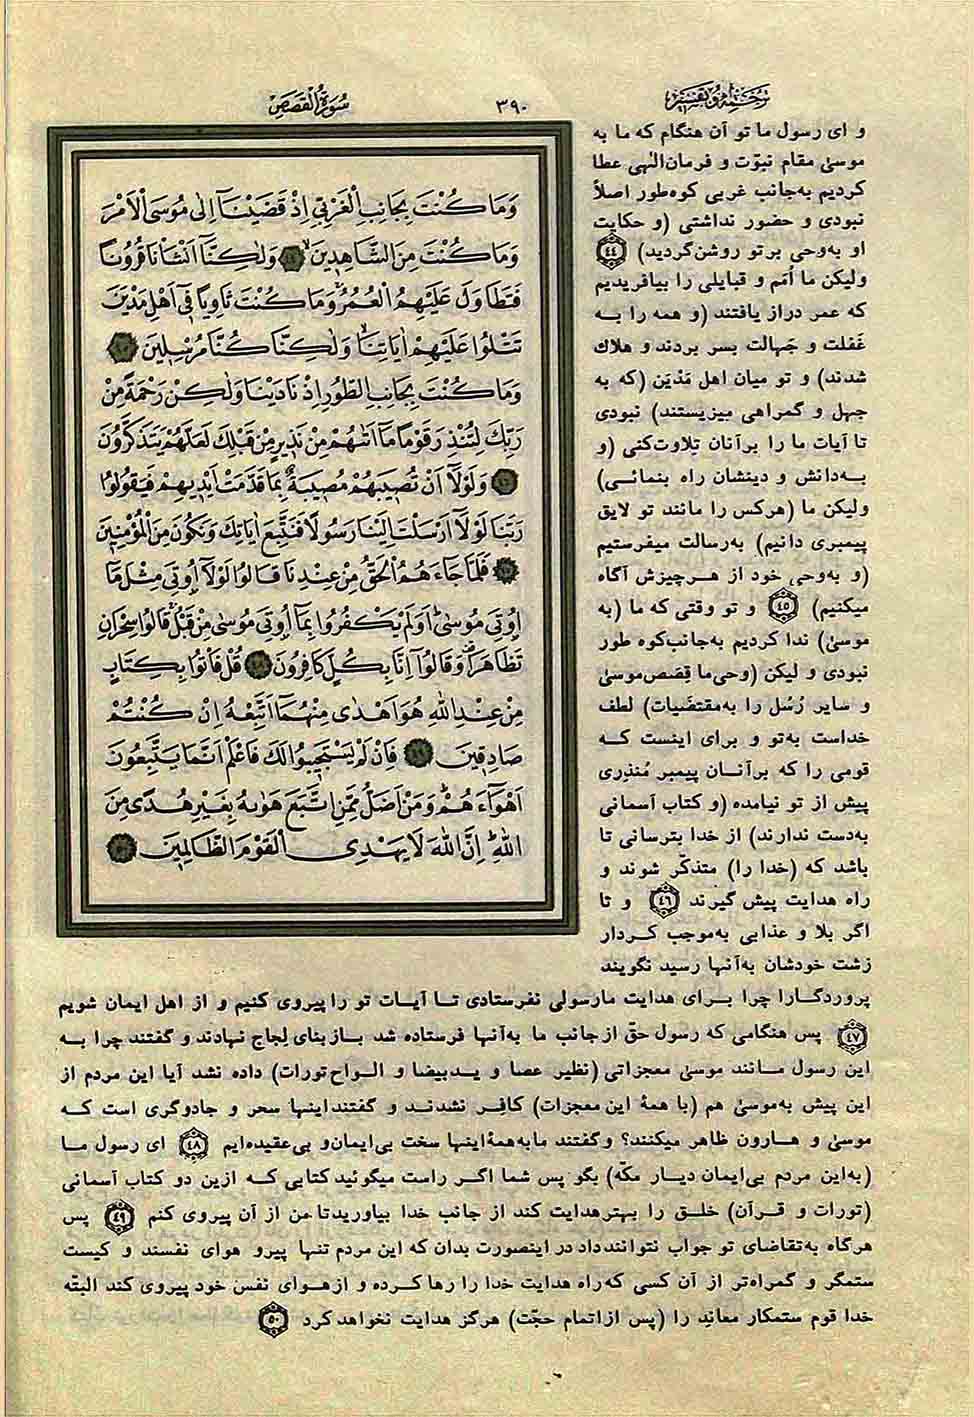 سُورَةُ الْقَصَصِ
٣٩٠
وَمَا كُنْتَ بِجَانِبِ الْغَرْبِيِّ اِذْ قَضَيْنَآ اِلٰى مُوسَى الْاَمْرَ
وَمَا كُنْتَ مِنَ الشَّاهِدِينَ ٤٤ وَلٰكِنَّآ اَنْشَأْنَا قُرُونًا
فَتَطَاوَلَ عَلَيْهِمُ الْعُمُرُ وَمَا كُنْتَ ثَاوِيًا فِٓى اَهْلِ مَدْيَنَ
تَتْلُوا عَلَيْهِمْ اٰيَاتِنَا وَلٰكِنَّا كُنَّا مُرْسِلِينَ ٤٥
وَمَا كُنْتَ بِجَانِبِ الطُّورِ اِذْ نَادَيْنَا وَلٰكِنْ رَحْمَةً مِنْ
رَبِّكَ لِتُنْذِرَ قَوْمًا مَآ اَتٰهُمْ مِنْ نَذِيرٍ مِنْ قَبْلِكَ لَعَلَّهُمْ يَتَذَكَّرُونَ
٤٦ وَلَوْلَآ اَنْ تُصِيبَهُمْ مُصِيبَةٌ بِمَا قَدَّمَتْ اَيْدِيهِمْ فَيَقُولُوا
رَبَّنَا لَوْلَآ اَرْسَلْتَ اِلَيْنَا رَسُولًا فَنَتَّبِعَ اٰيَاتِكَ وَنَكُونَ مِنَ الْمُؤْمِنِينَ
٤٧ فَلَمَّا جَآءَهُمُ الْحَقُّ مِنْ عِنْدِنَا قَالُوا لَوْلَآ اُوتِيَ مِثْلَ مَآ
اُوتِيَ مُوسٰى اَوَلَمْ يَكْفُرُوا بِمَآ اُوتِيَ مُوسٰى مِنْ قَبْلُ قَالُوا سِحْرَانِ
تَظَاهَرَا وَقَالُوٓا اِنَّا بِكُلٍّ كَافِرُونَ ٤٨ قُلْ فَأْتُوا بِكِتَابٍ
مِنْ عِنْدِ اللّٰهِ هُوَ اَهْدٰى مِنْهُمَآ اَتَّبِعْهُ اِنْ كُنْتُمْ
صَادِقِينَ ٤٩ فَاِنْ لَمْ يَسْتَجِيبُوا لَكَ فَاعْلَمْ اَنَّمَا يَتَّبِعُونَ
اَهْوَآءَهُمْ وَمَنْ اَضَلُّ مِمَّنِ اتَّبَعَ هَوٰيهُ بِغَيْرِ هُدًى مِنَ
اللّٰهِ اِنَّ اللّٰهَ لَا يَهْدِى الْقَوْمَ الظَّالِمِينَ ٥٠
و ای رسول ما تو آن هنگام که ما به
موسیٰ مقام نبوّت و فرمان الٰهی عطا
کردیم به‌جانب غربی کوه‌طور اصلاً
نبودی و حضور نداشتی (و حکایت
او به‌وحی برتو روشن‌گردید) ٤٤
ولیکن ما اُمَم و قبایلی را بیافریدیم
که عمر دراز یافتند (و همه را بـه
غَفلت و جَهالت بسر بردند و هلاك
شدند) و تو میان اهل مَدْیَن (که به
جهل و گمراهی میزیستند) نبودی
تا آیات ما را برآنان تِلاوت‌کنی (و
بـه‌دانش و دینشان راه بنمائـی)
ولیکن ما (هرکس را مانند تو لایق
پیمبری دانیم) به‌رسالت میفرستیم
(و به‌وحی خود از هـرچیزش آگاه
میکنیم) ٤٥ و تو وقتی که ما (به
موسیٰ) ندا کردیم به‌جانب‌کوه طور
نبودی و لیکن (وحی‌ما قِصَص‌موسیٰ
و سایر رُسُل را به‌مقتضَیات) لطف
خداست به‌تو و برای اینست کـه
قومی را که برآنـان پیمبر مُنذِری
پیش از تو نیامده (و کتاب آسمانی
به‌دست ندارند) از خدا بترسانی تا
باشد که (خدا را) متذکّر شوند و
راه هدایت پیش گیرند ٤٦ و تا
اگر بلا و عذابی به‌موجب کـردار
زشت خودشان به‌آنها رسید نگویند
پروردگـارا چرا بـرای هدایت مارسولی نفرستادی تـا آیـات تو را پیروی کنیم و از اهل ایمان شویم
٤٧ پس هنگامی که رسول حقّ از جانب ما به‌آنها فرستاده شد بـاز بنای لِجاج نهادند و گفتند چرا بـه
این رسول مـانند موسیٰ معجزاتی (نظیر عصا و یـدبیضا و الـواح تورات) داده نشد آیا این مردم از
این پیش به‌موسیٰ هم (با همهٔ این معجزات) کافِـر نشدنـد و گفتنداینهـا سحر و جادوگری است کـه
موسیٰ و هـارون ظاهر میکنند؟ و گفتند ما به همهٔ اینها سخت بی‌ایمان و بی‌عقیده‌ایم ٤٨ ای رسول مـا
(به‌این مردم بی‌ایمان دیـار مکّه) بگو پس شما اگـر راست میگوئید کتابی کـه ازین دو کتاب آسمانی
(تورات و قـرآن) خلـق را بهتر هدایت کند از جانب خدا بیاورید تا من از آن پیروی کنم ٤٩ پس
هرگاه به‌تقاضای تو جواب نتوانند داد در اینصورت بدان که این مردم تنها پیرو هوای نفسند و کیست
ستمگر و گمراه‌تر از آن کسی که‌راه هدایت خدا را رها کـرده و ازهـوای نفس خود پیروی کند البتّه
خدا قوم ستمکار معاند را (پس از اتمام حجّت) هرگز هدایت نخواهد کرد ٥٠